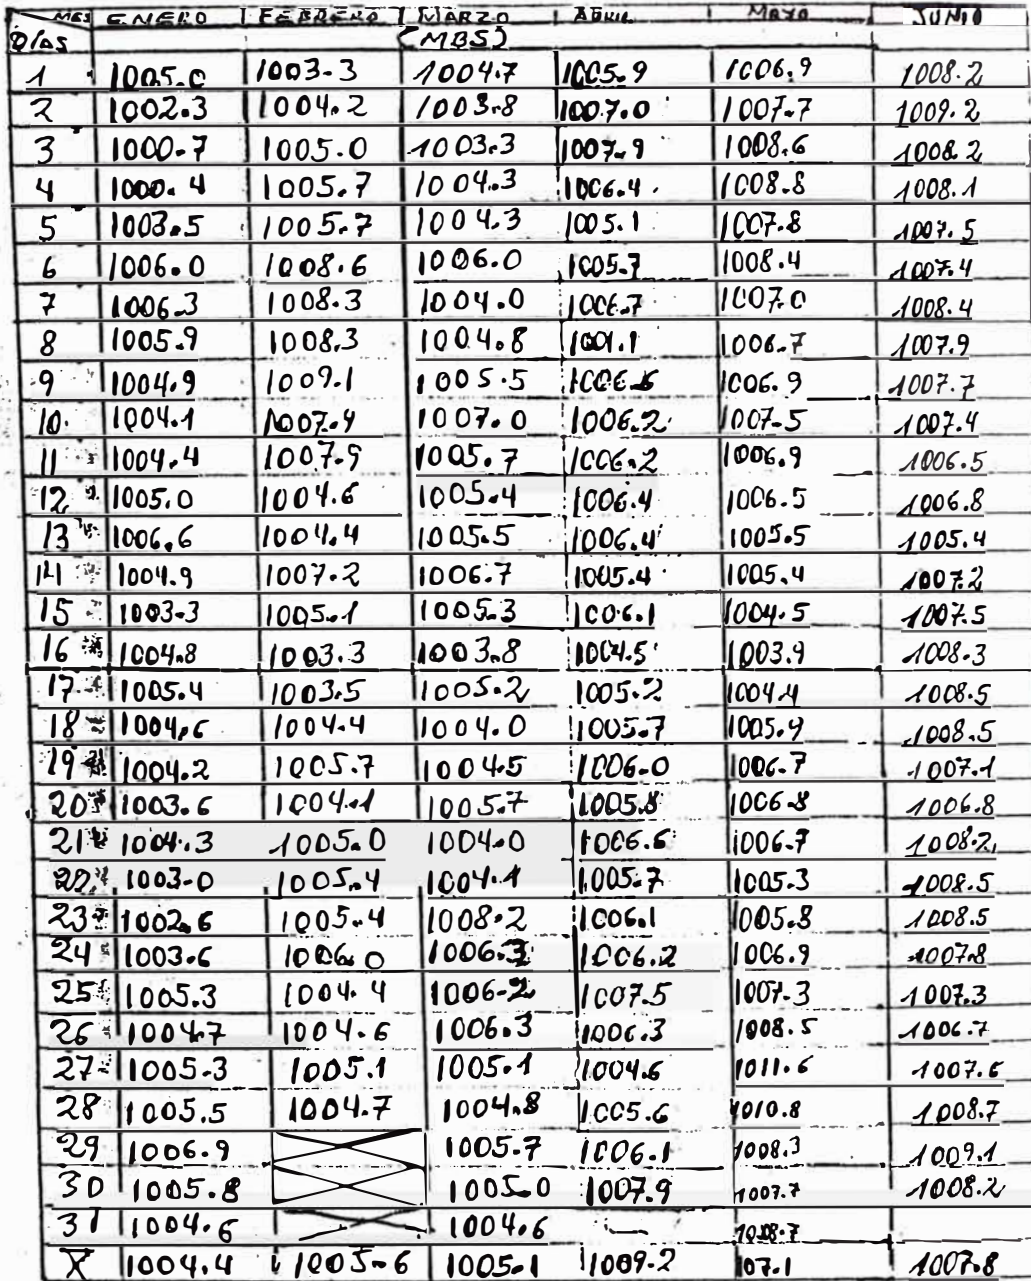 MES ENERO FEBRERO MARZO ABRIL MAYO JUNIO
DIAS (MBS)
1 1005.0 1003.3 1004.7 1005.9 1006.9 1008.2
2 1002.3 1004.2 1003.8 1007.0 1007.7 1009.2
3 1000.7 1005.0 1003.3 1007.9 1008.6 1008.2
4 1000.4 1005.7 1004.3 1006.4 1008.8 1008.1
5 1003.5 1005.7 1004.3 1005.1 1007.8 1007.5
6 1006.0 1008.6 1006.0 1005.7 1008.4 1007.4
7 1006.3 1008.3 1004.0 1006.7 1007.0 1008.4
8 1005.9 1008.3 1004.8 1006.7 1007.9
9 1004.9 1009.1 1005.5 1006.6 1006.9 1007.7
10 1004.1 1007.4 1007.0 1006.2 1007.5 1007.4
11 1004.4 1007.9 1005.7 1006.2 1006.9 1006.5
12 1005.0 1004.6 1005.4 1006.4 1006.5 1006.8
13 1006.6 1004.4 1005.5 1006.4 1005.5 1005.4
14 1004.9 1007.2 1006.7 1005.4 1005.4 1007.2
15 1003.3 1005.1 1005.3 1006.1 1004.5 1007.5
16 1004.8 1003.3 1003.8 1004.5 1003.9 1008.3
17 1005.4 1003.5 1005.2 1005.2 1004.4 1008.5
18 1004.6 1004.4 1004.0 1005.7 1005.9 1008.5
19 1004.2 1005.7 1004.5 1006.0 1006.7 1007.1
20 1003.6 1004.1 1005.7 1005.8 1006.8 1006.8
21 1004.3 1005.0 1004.0 1006.6 1006.7 1008.2
22 1003.0 1005.4 1004.1 1005.7 1005.3 1008.5
23 1002.6 1005.4 1008.2 1006.1 1005.8 1008.5
24 1003.6 1006.0 1006.3 1006.2 1006.9 1007.8
25 1005.3 1004.4 1006.2 1007.5 1007.3 1007.3
26 1004.7 1004.6 1006.3 1006.3 1008.5 1006.7
27 1005.3 1005.1 1005.1 1004.6 1011.6 1007.6
28 1005.5 1004.7 1004.8 1005.6 1010.8 1008.7
29 1006.9 1005.7 1006.1 1008.3 1009.1
30 1005.8 1005.0 1007.9 1007.7 1008.2
31 1004.6 1004.6 — 1008.7
X 1004.4 1005.6 1005.1 1009.2 107.1 1007.8